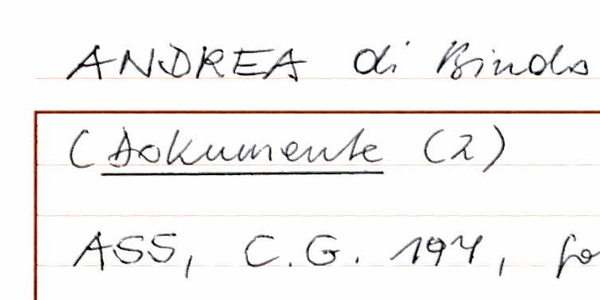 ANDREA di Bindo
(Dokumente (2)
ASS, C.G. 194, fo